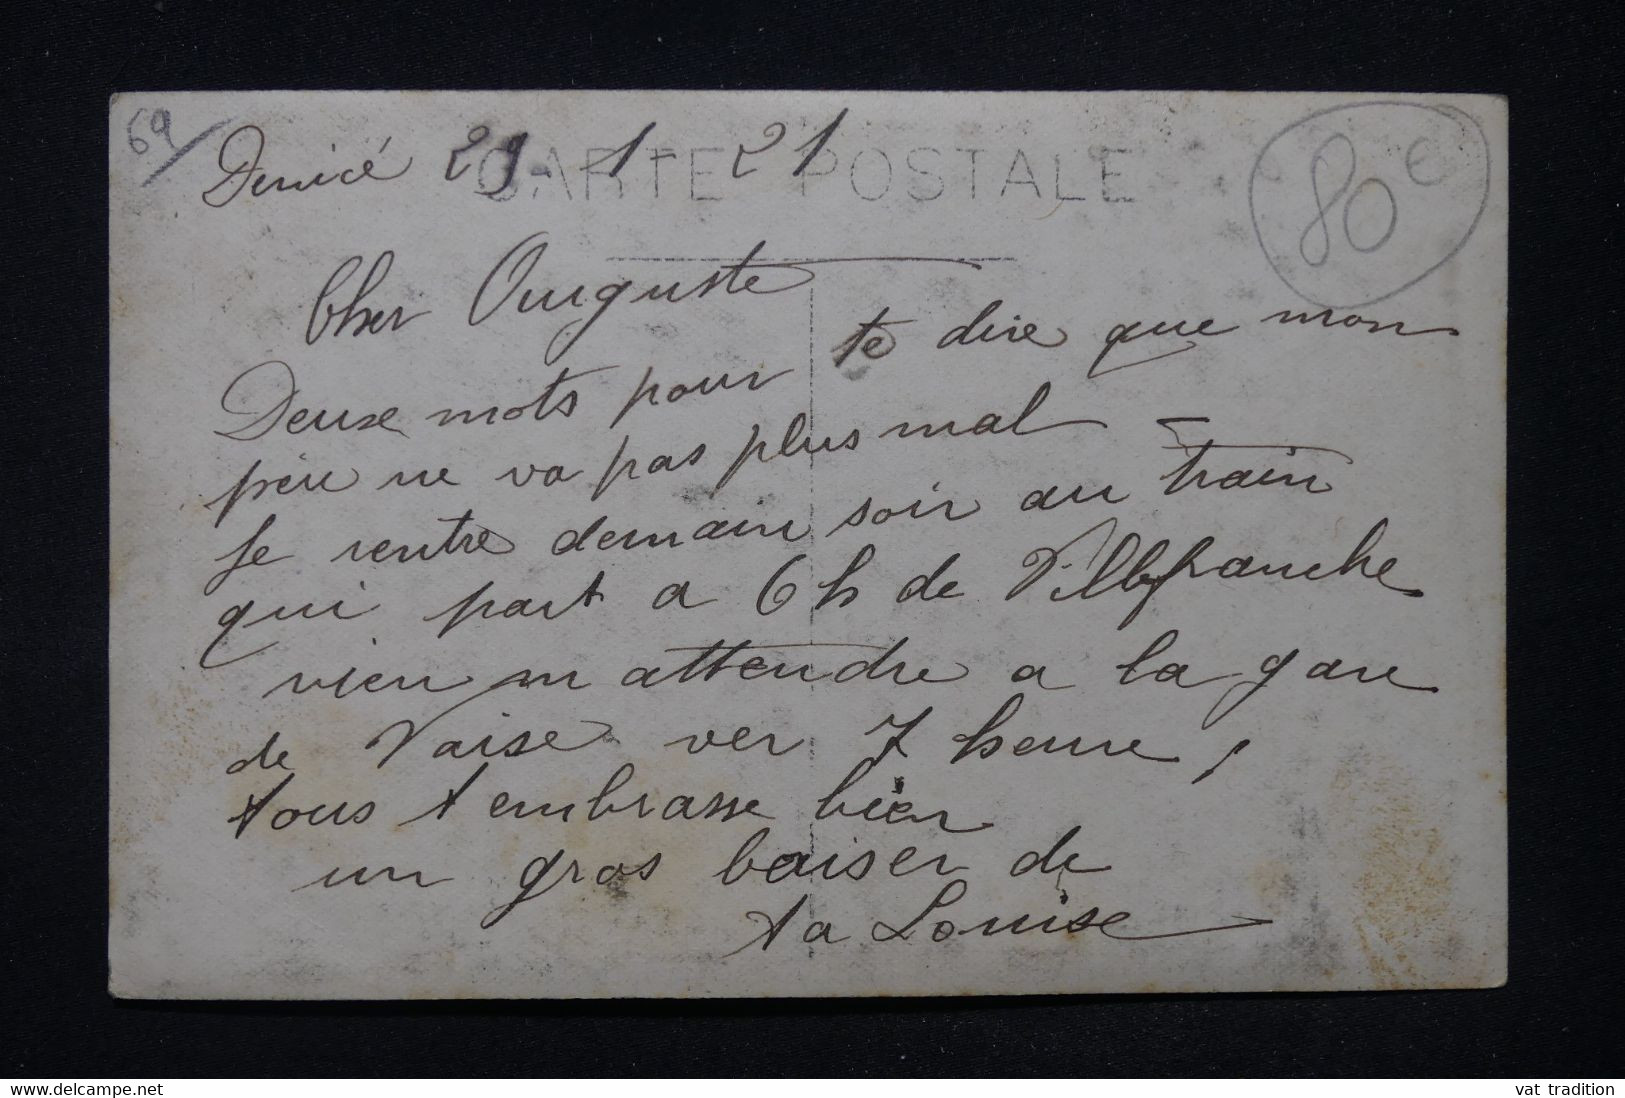 69/
80 €
CARTE POSTALE
Denicé 29-1-21
Cher Auguste
Deux mots pour te dire que mon
père ne va pas plus mal -
Je rentre demain soir au train
qui part a 6 h de Villefranche
vien m attendre a la gare
de Vaise ver 7 heure,
tous t embrasse bien
un gros baiser de
ta Louise
www.delcampe.net
vat_tradition